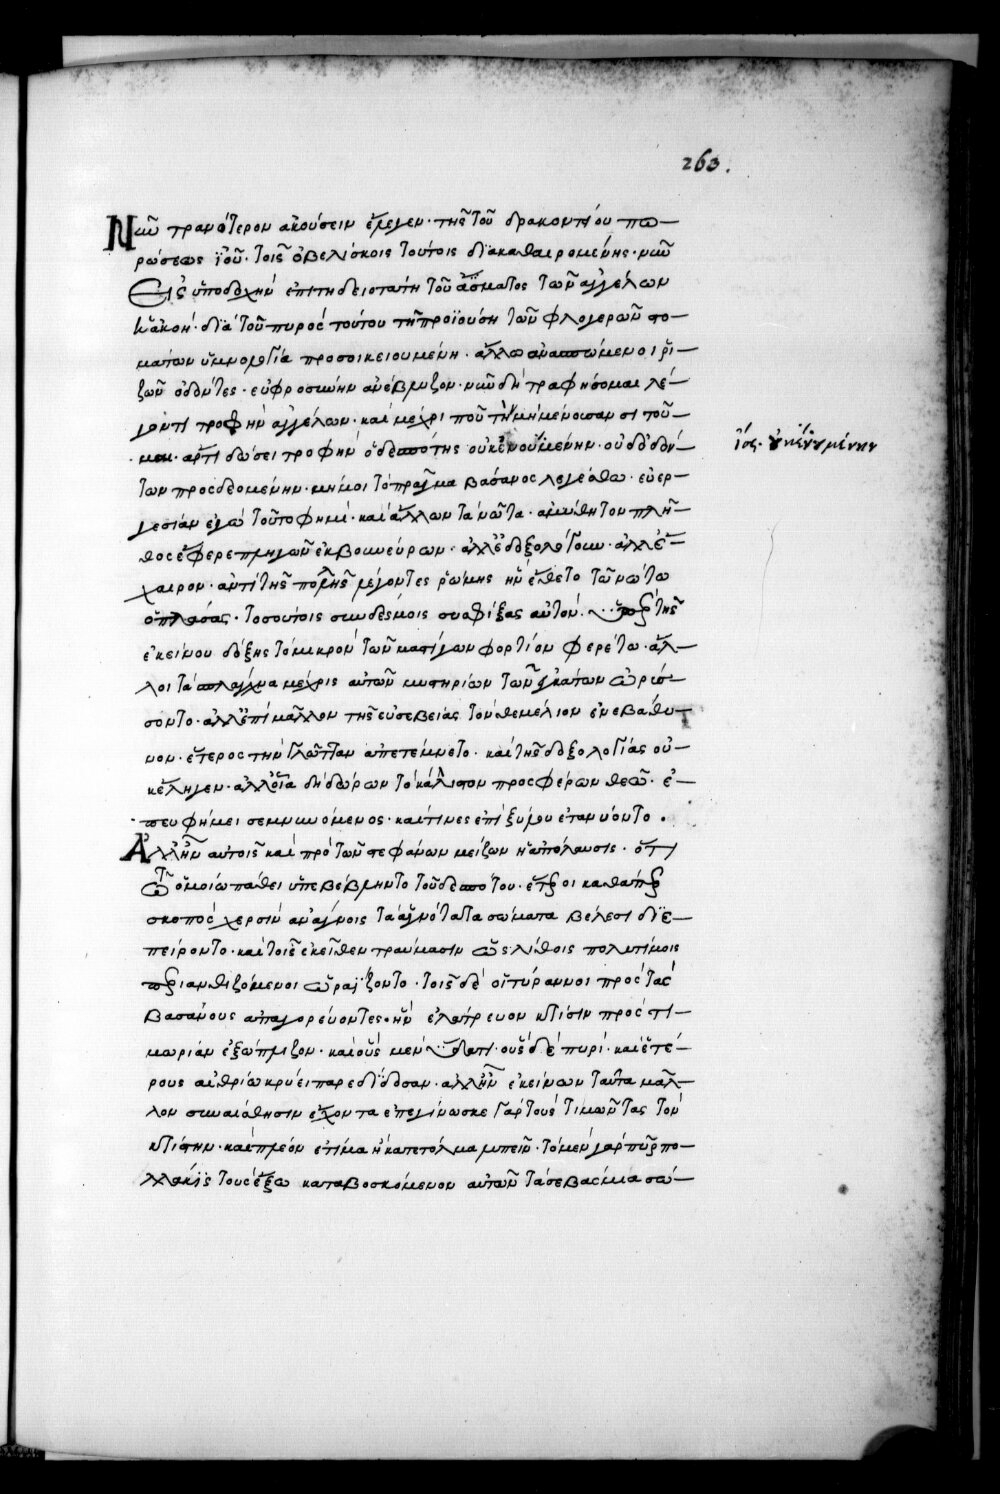 263.
Νῦν τρανότερον ἀκούσειν ἔλεγεν· τῆς τοῦ δρακοντείου πω-
ρώσεως ἰοῦ· τοῖς ὀβελίσκοις τούτοις διακαθαιρομένης· νῦν
εἰς ὑποδοχὴν ἐπιτηδειοτάτη τοῦ ᾄσματος τῶν ἀγγέλων
ἡ ἀκοή· διὰ τοῦ πυρὸς τούτου τῇ προϊούσῃ τῶν φλογερῶν στο-
μάτων ὑμνολογία προσοικειουμένη· ἄλλῳ ἀνασπώμενοι ῥι-
ζῶν ὀδόντες· εὐφροσύνην ἀνέβλυζον· νῦν δὴ τραφήσομαι λέ-
γοντι τροφὴν ἀγγέλων· καὶ μέχρι ποῦ τὴν
ἄρτι δώσει τροφὴν ὁ δεσπότης οὐ κενουμένην· οὐδ' ὀδόν-
των προσδεομένην· μή μοι τὸ πρᾶγμα βάσανος λεγέσθω· εὐερ-
γεσίαν ἐγὼ τοῦτο φημί· καὶ ἄλλων τὰ νῶτα· ἀμύθητον πλῆ-
θος ἔφερε πληγῶν ἐκ βουνεύρων· ἀλλ' ἐδοξολόγουν· ἀλλ' ἔ-
χαιρον· ἀντὶ τῆς πολλῆς λέγοντες ῥώμης ἣν ἔθετο τῷ νώτῳ
ὁ πλάσας· τοσούτοις συνδέσμοις συσφίξας αὐτόν· ὑπὲρ τῆς
ἐκείνου δόξης τὸ μικρὸν τῶν μαστίγων φορτίον φερέτω· ἄλ-
λοι τὰ σπλάγχνα μέχρις αὐτῶν μυστηρίων τῶν ἐγκάτων ὠρύσ-
σοντο· ἀλλ' ἐπὶ μᾶλλον τῆς εὐσεβείας τὸν θεμέλιον ἐνεβάθυ-
νον· ἕτερος τὴν γλῶτταν ἀπετέμνετο· καὶ τῆς δοξολογίας οὐ-
κ ἔληγεν· ἀλλ' οἷα δὴ δώρων τὸ κάλλιστον προσφέρων θεῷ· ἐ-
πευφήμει σεμνυνόμενος· καί τινες ἐπὶ ξύλου ἐτανύοντο.
Ἀλλ' ἦν αὐτοῖς καὶ πρὸ τῶν στεφάνων μείζων ἡ ἀπόλαυσις· ὅτι
τῷ ὁμοίῳ πάθει ὑπεβέβληντο τοῦ δεσπότου· ἕτεροι καθάπερ
σκοπὸς χερσὶν ἀνάγνοις τὰ ἁγνότατα σώματα βέλεσι διε-
πείροντο· καὶ τοῖς ἐκεῖθεν τραύμασιν ὡς λίθοις πολυτίμοις
περιανθιζόμενοι ὡραΐζοντο· τοῖς δὲ οἱ τύραννοι πρὸς τὰς
βασάνους ἀπαγορεύοντες· ἣν ἐλάτρευον κτίσιν πρὸς τι-
μωρίαν ἐξώπλιζον· καὶ οὓς μὲν ὕδατι· οὓς δὲ πυρί· καὶ ἑτέ-
ρους αἰθρίῳ κρύει παρεδίδοσαν· ἀλλ' ἦν ἐκείνων ταῦτα μᾶλ-
λον συναίσθησιν ἔχοντα ἐπεγίνωσκε γὰρ τοὺς τιμῶντας τὸν
κτίστην· καὶ πλέον ἐτίμα ἢ κατετόλμα λυπεῖν· τὸ μὲν γὰρ πῦρ πο-
λλάκις τοὺς ἔξω καταβοσκόμενον αὐτῶν τὰ σεβάσμια σώ-
ἴσως·